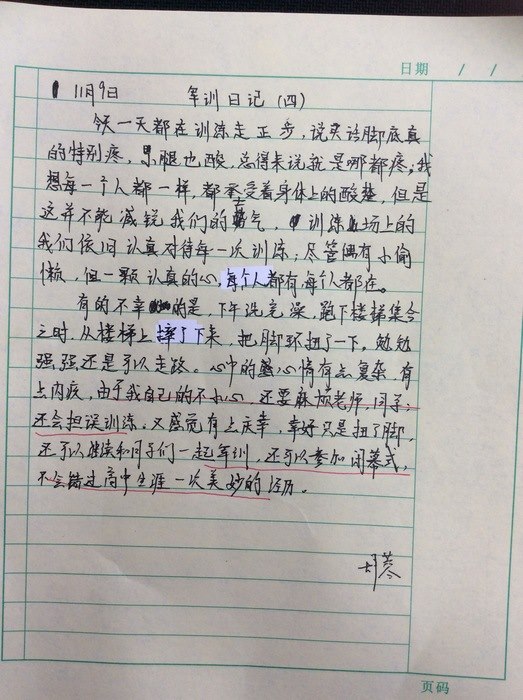 日期 / /
11月9日 军训日记(四)
今天一天都在训练走正步,说实话脚底真
的特别疼,累,腿也酸,总得来说就是哪都疼。我
想每一个人都一样,都承受着身体上的酸楚,但是
这并不能减锐我们的勇气,训练场上的
我们依旧认真对待每一次训练,尽管偶有小偷
懒,但一颗认真的心,每个人都有,每个人都在。
有的不幸的是,下午洗完澡,跑下楼梯集合
之时,从楼梯上摔了下来,把脚环扭了一下,勉勉
强强还是可以走路。心中的心情有点复杂,有
点内疚,由于我自己的不小心,还要麻烦老师,同学;
还会担误训练。又感觉有点庆幸,幸好只是扭了脚,
还可以继续和同学们一起军训,还可以参加闭幕式,
不会错过高中生涯一次美妙的经历。
页码